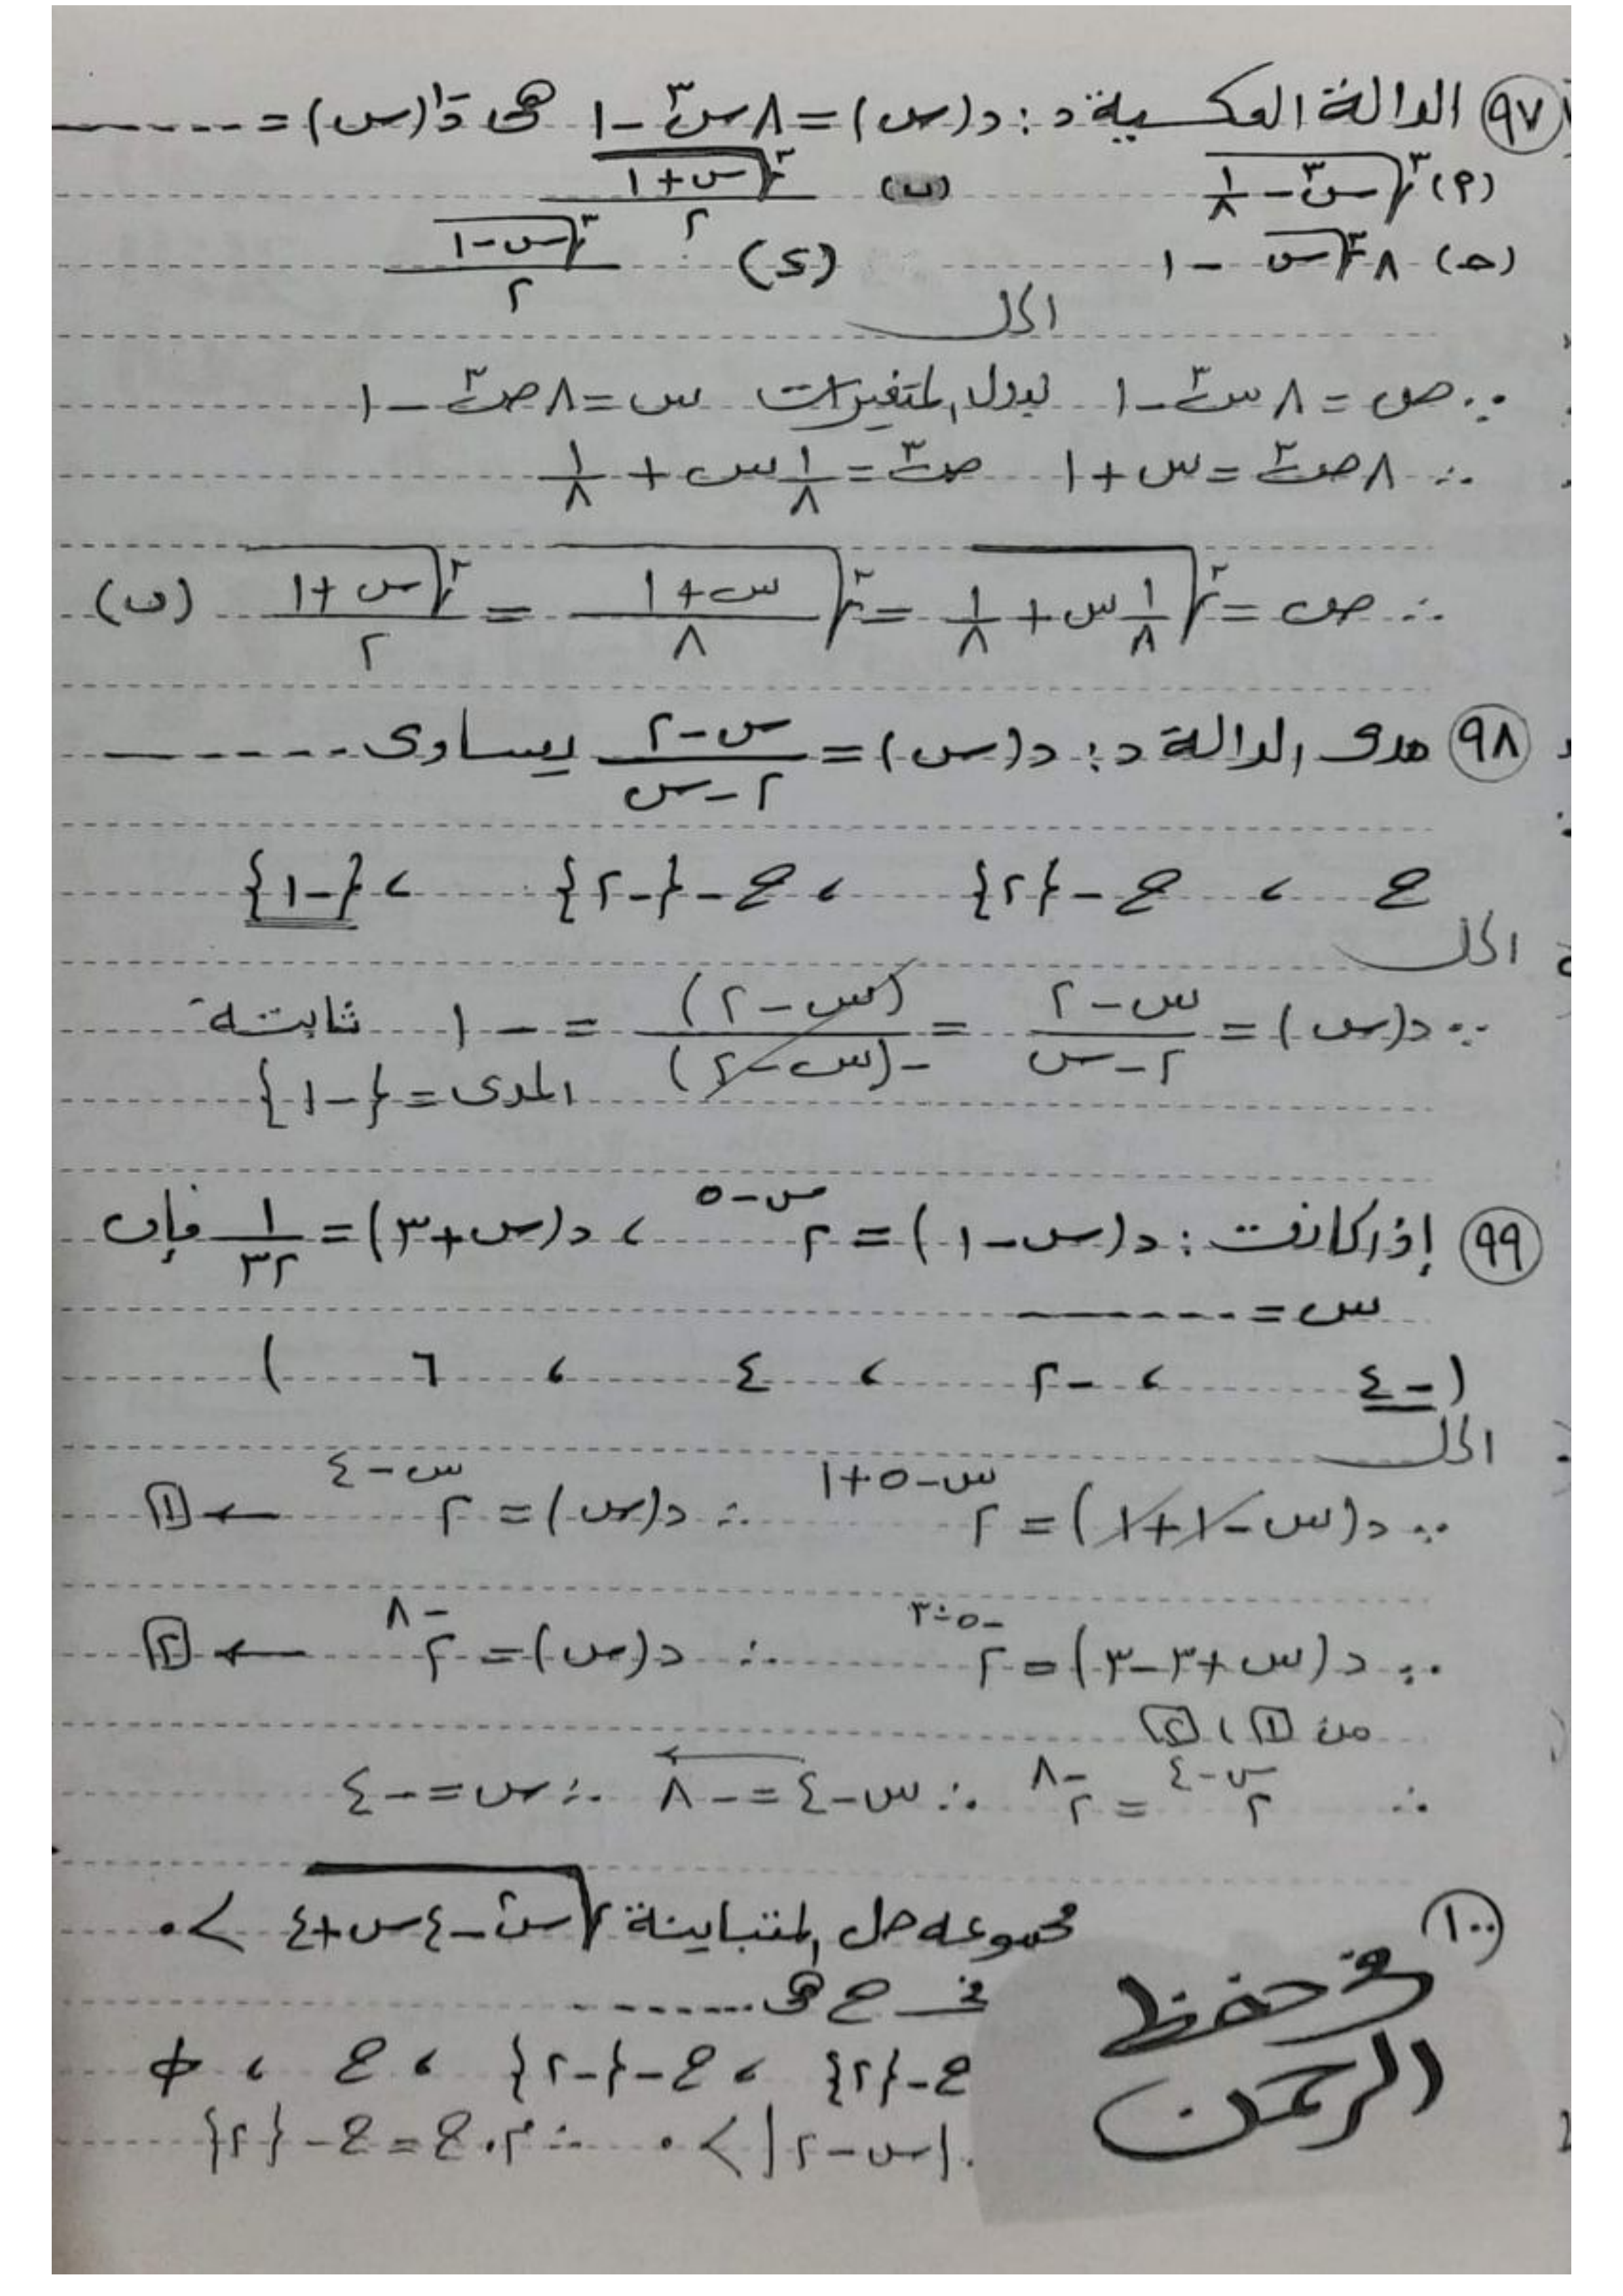 (٩٧) الدالة العكسية د : د(س) = ٨س٣ - ١ هى د-١(س) = ------
(٩) ٣√(س٣ - ١/٨) (ب) ٣√(س+١)/٢
(ح) ٨ ٣√س - ١ (د) ٣√(س-١)/٢
الحل
∵ ص = ٨س٣ - ١ نبدل المتغيرات س = ٨ص٣ - ١
∴ ٨ص٣ = س + ١ ص٣ = ١/٨ س + ١/٨
∴ ص = ٣√(١/٨ س + ١/٨) = ٣√((س+١)/٨) = ٣√(س+١)/٢ (ب)
(٩٨) مدى الدالة د : د(س) = (س-٢)/(٢-س) يساوى ------
ح ، ح - {٢} ، ح - {-٢} ، {-١}
الحل
∵ د(س) = (س-٢)/(٢-س) = (س-٢)/-(س-٢) = -١ ثابتة
المدى = {-١}
(٩٩) إذا كانت : د(س-١) = ٢^(س-٥) ، د(س+٣) = ١/٣٢ فإن
س = ------
( -٤ ، -٢ ، ٤ ، ٦ )
الحل
∵ د(س-١+١) = ٢^(س-٥+١) ∴ د(س) = ٢^(س-٤) ← [١]
∵ د(س+٣-٣) = ٢^(-٥-٣) ∴ د(س) = ٢^(-٨) ← [٢]
من [١] ، [٢]
∴ ٢^(س-٤) = ٢^(-٨) ∴ س-٤ = -٨ ∴ س = -٤
(١٠٠) مجموعه حل المتباينة √(س٢ - ٤س + ٤) > ٠
فى ح هى ------
ح - {٢} ، ح - {-٢} ، ح ، ∅
|س-٢| > ٠ ∴ م.ح = ح - {٢}
فى حفظ
الرحمن